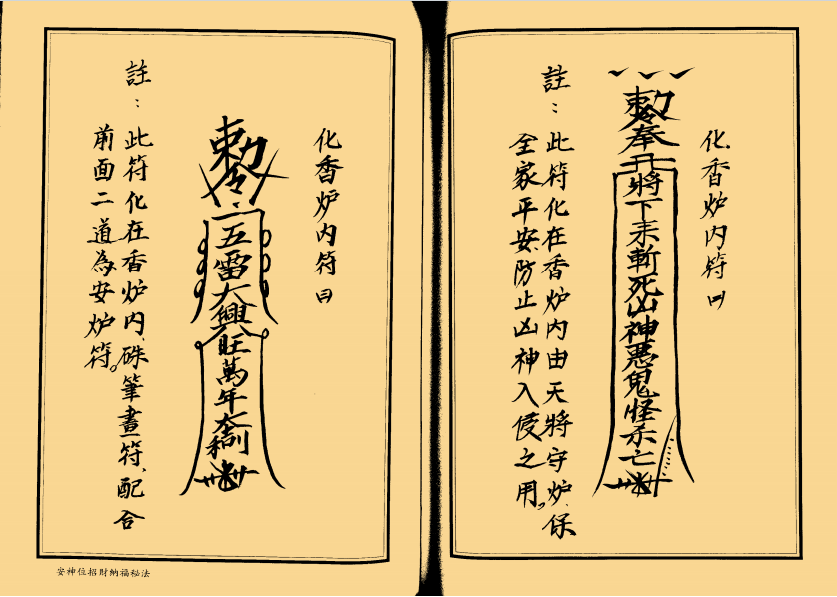 化香炉内符曰
敕令奉天將下来斬死凶神悪鬼怪示亡
註：此符化在香炉内由天將守炉、保
全家平安、防止凶神入侵之用。
化香炉内符曰
敕令
五雷大興旺萬年大利
註：此符化在香炉内、硃筆畫符、配合
前面二道為安炉符。
安神位招財納福秘法